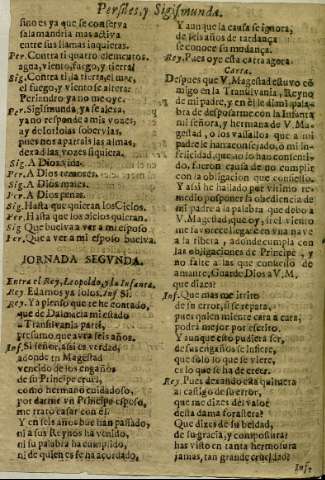 Persiles, y Sigismunda.
sino es ya que se conserva
salamandria mas activa
entre sus llamas inquietas.
Per. Contra ti quatro elementos.
agua, viento, fuego, y tierra
Sig. Contra ti la tierra, el mar,
el fuego, y viento se altera
Periandro ya no me oye.
Per. Sigismunda, ya se alexa.
no responde a mis vozes,
ay de los soberbias,
pues nos apartais las almas,
dera d las vozes siquiera.
Sig. A Dios vida.
Per. A Dios temores.
Sig. A Dios males.
Per. A Dios penas.
Sig. Hasta que quieran los Cielos.
Per. Hasta que los cielos quieran.
Sig. Que buelva a ver a mi esposo
Per. Que a ver a mi esposo buelva.
JORNADA SEGVNDA.
Entra el Rey, Leopoldo, y la Infanta.
Rey. Estamos ya solos, Inf. Si.
Rey. Ya pienso que te he contado,
que de Dalmacia mi estado
a Transilvania passè,
presumo que avra seis años.
Inf. Si señor, assi es verdad,
adonde tu Magestad
vencido de los engaños
de su Principe cruel,
como hermano cuidadoso,
por darme un Principe esposo,
me trató casar con el.
Y en seis años que han passado,
ni a sus Reynos ha venido,
ni su palabra ha cumplido,
ni de quien es se ha acordado,
Y aunque la causa se ignora,
de seis años de tardança
se conoce su mudança.
Rey. Pues oye esta carta agora.
Carta.
Despues que V. Magestad estuvo cõ
migo en la Transilvania, Reyno
de mi padre, y en èl le di mi palabra
de desposarme con la Infanta
mi señora, y hermana de V. Magestad,
o los vassallos que a mi
padre le han aconsejado, ò mi infelicidad,
que no lo han consentido,
fueron causa de no cumplir
con la obligacion que conozco.
Y assi he hallado por vltimo remedio
posponer la obediencia de
mi padre a la palabra que debo a
V. Magestad que oy, si el viento
me favorece llegarè en vna nave
a la ribera, adonde cumpla con
las obligaciones de Principe, y
no falte a las que conozco de
amante, Guarde Dios a V. M,
que dizes?
Inf. Que mas me irrito
de su error, si se repara,
pues quien miente cara a cara,
podrà mejor por escrito.
Y aunque esto pudiera ser,
de sus engaños se infiere,
que solo lo que se viere,
es lo que se ha de creer.
Rey. Pues dexando esta quimera
al castigo de su error,
que me dizes del valor
desta dama forastera?
Que dizes de su beldad,
de su gracia, y compostura?
has visto en tanta hermosura
jamas, tan grande crueldad?
Inf.